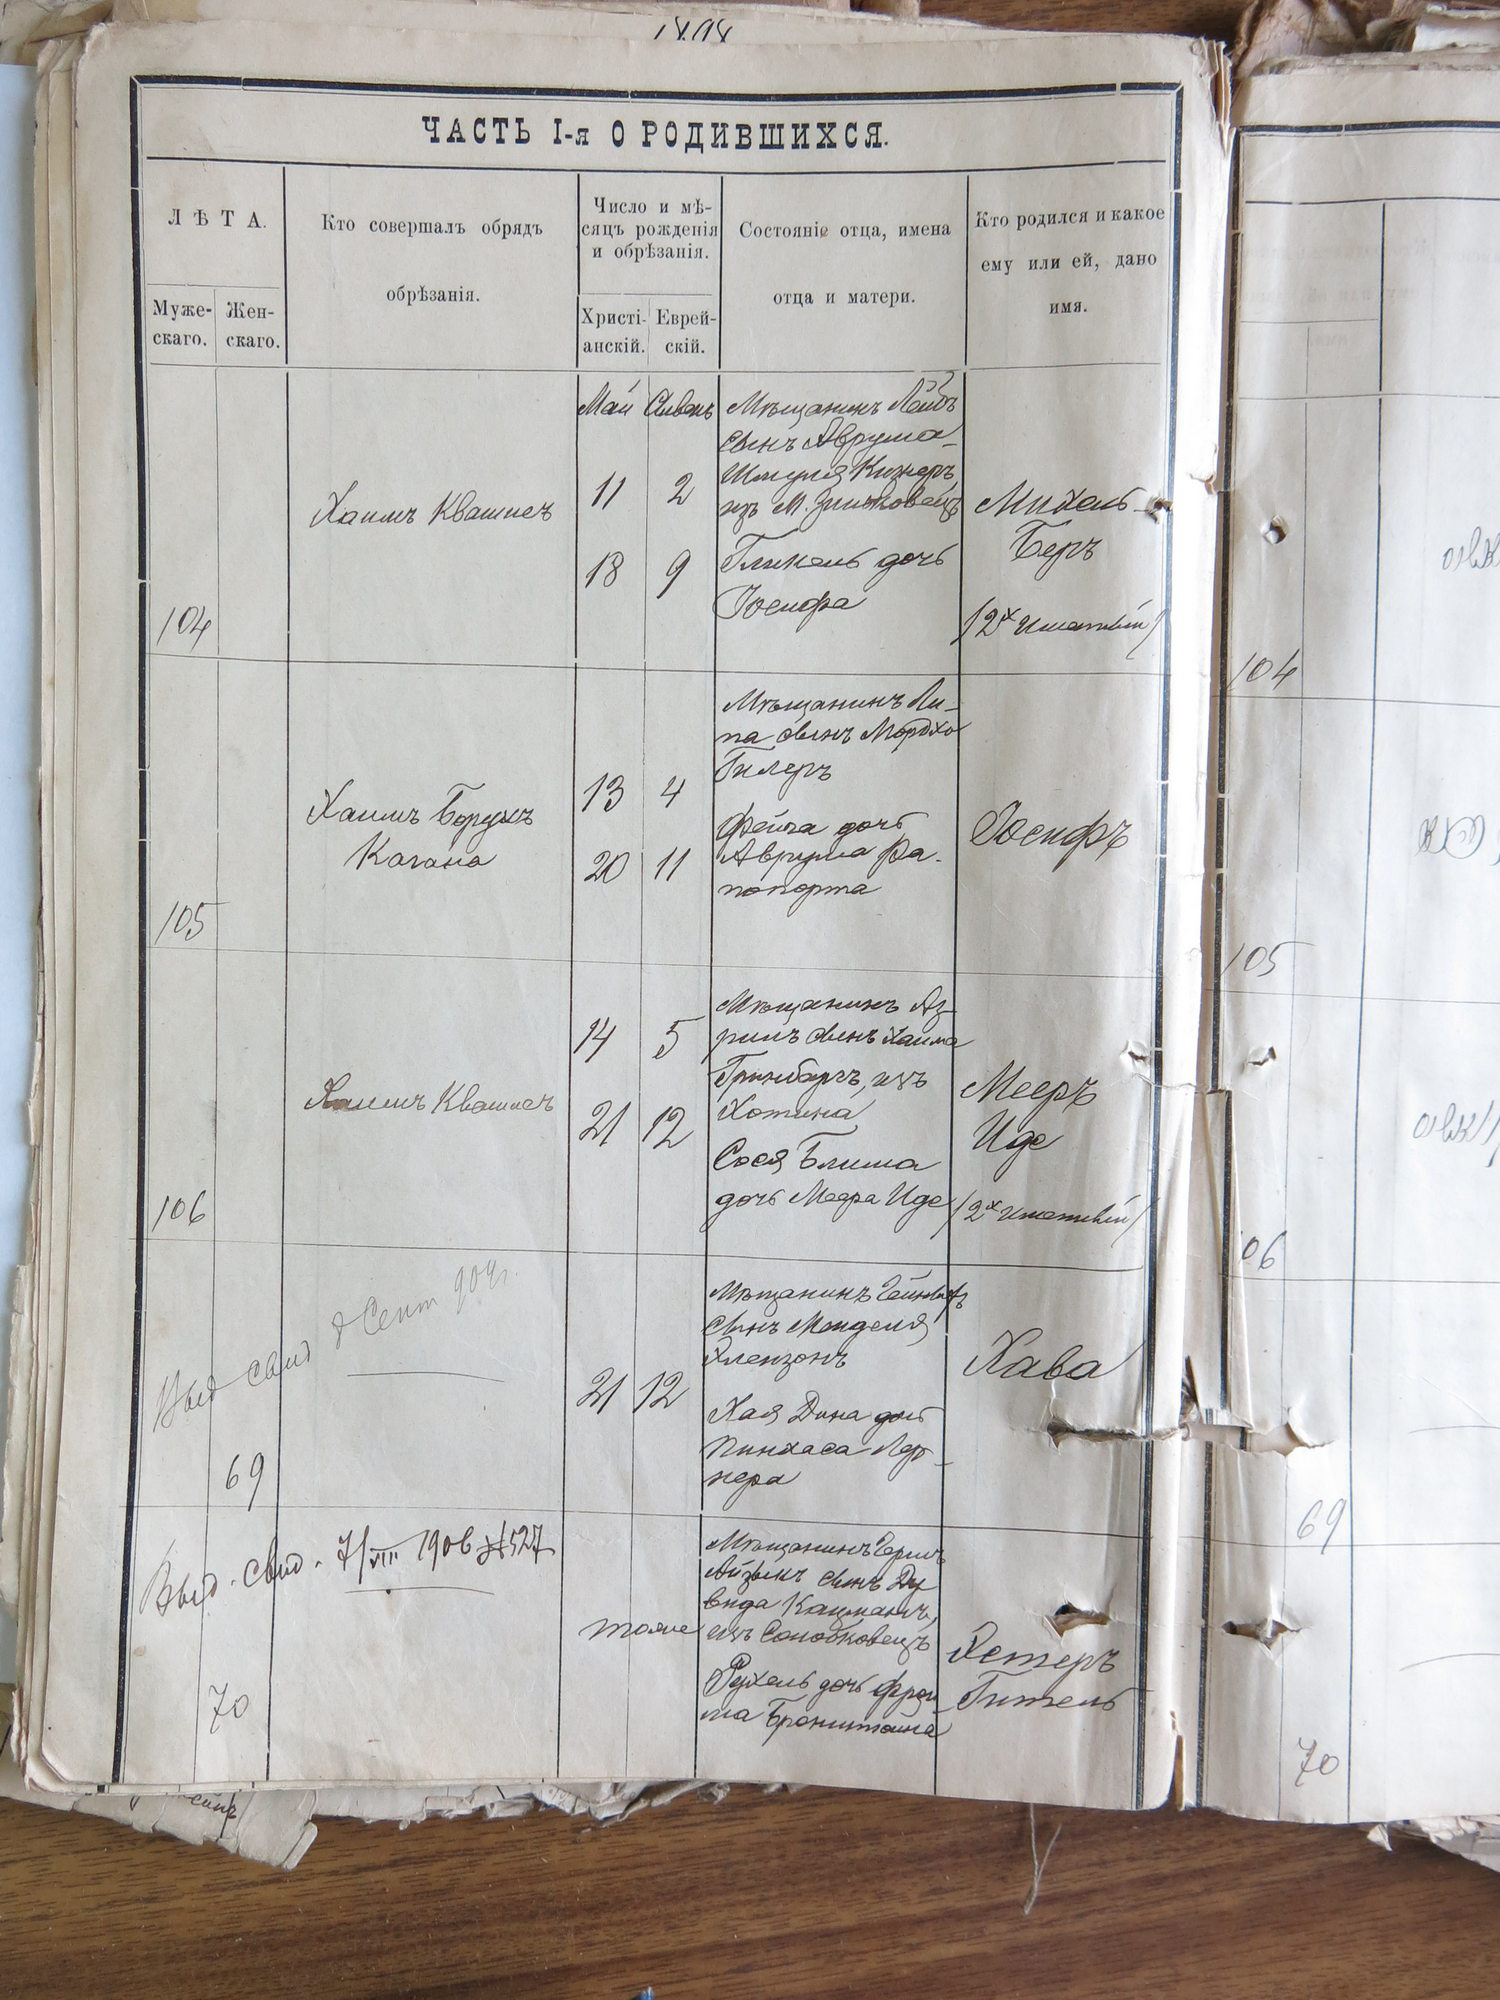 ЧАСТЬ I-я О РОДИВШИХСЯ.
ЛѢТА.
Муже-
скаго.
Жен-
скаго.
Кто совершалъ обрядъ
обрѣзанія.
Число и мѣ-
сяцъ рожденія
и обрѣзанія.
Христі-
анскій.
Еврей-
скій.
Состояніе отца, имена
отца и матери.
Кто родился и какое
ему или ей, дано
имя.
104
Хаимъ Квашнеъ
Май Сивонь
11 2
18 9
Мѣщанинъ Лейбъ
сынъ Аврума-
Шмуля Кижнеръ
изъ М. Зиньковецъ
Гликель дочь
Іосифа
Михель-
Беръ
/2х именный/
105
Хаимъ Борухъ
Кагана
13 4
20 11
Мѣщанинъ Ли-
па сынъ Мордхо
Гилеръ
Фейга дочь
Аврума Ра-
попорта
Іосифъ
106
Хаимъ Квашнеъ
14 5
21 12
Мѣщанинъ Аз-
рилъ сынъ Хаима
Гринбаргъ, изъ
Хотина
Сося Блима
дочь Меера Иде
Мееръ
Иде
/2х именный/
Выд свид 8 Сент 904г.
69
21 12
Мѣщанинъ
сынъ Менделя
Хая Дина дочь
Пинхаса Лер-
нера
Хава
Выд. свид. 7/VIII 1906 №527
70
тоже
Мѣщанинъ Гершъ
Айзыкъ сынъ Ду
вида Кацманъ,
изъ Солобковецъ
Рухель дочь Фрои
ма Бронштейна
Эстеръ
Гитель
104
105
106
69
70